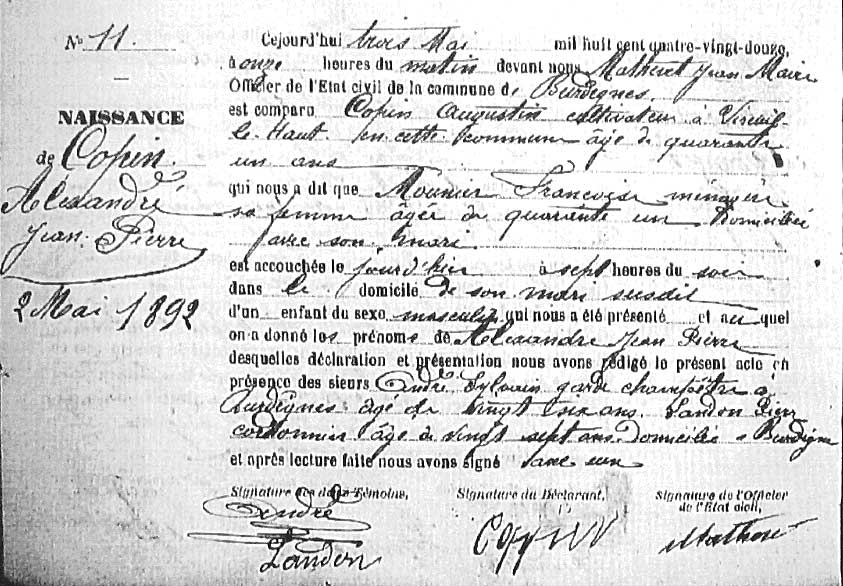 No 11.
NAISSANCE
de Copin
Alexandre
Jean-Pierre
2 Mai 1892
Cejourd'hui trois Mai mil huit cent quatre-vingt-douze,
à onze heures du matin devant nous Jean Maire
Officier de l'Etat civil de la commune de Burdignes.
est comparu Copin Augustin cultivateur à
le-haut en cette commune âgé de quarante
un ans
qui nous a dit que Mounier Françoise ménagère
sa femme âgée de quarante un domiciliée
avec son mari
est accouchée le jour d'hier à sept heures du soir
dans le domicile de son mari susdit
d'un enfant du sexe masculin qui nous a été présenté et auquel
on a donné les prénoms de Alexandre Jean Pierre
desquelles déclaration et présentation nous avons rédigé le présent acte en
présence des sieurs André Sylvain garde champêtre à
Burdignes âgé de vingt six ans. Landon Pierre
cordonnier âgé de vingt sept ans domiciliés à Burdignes
et après lecture faite nous avons signé avec eux
Signature des deux Témoins,
Signature du Déclarant,
Signature de l'Officier
de l'Etat civil,
André
Landon
Copin